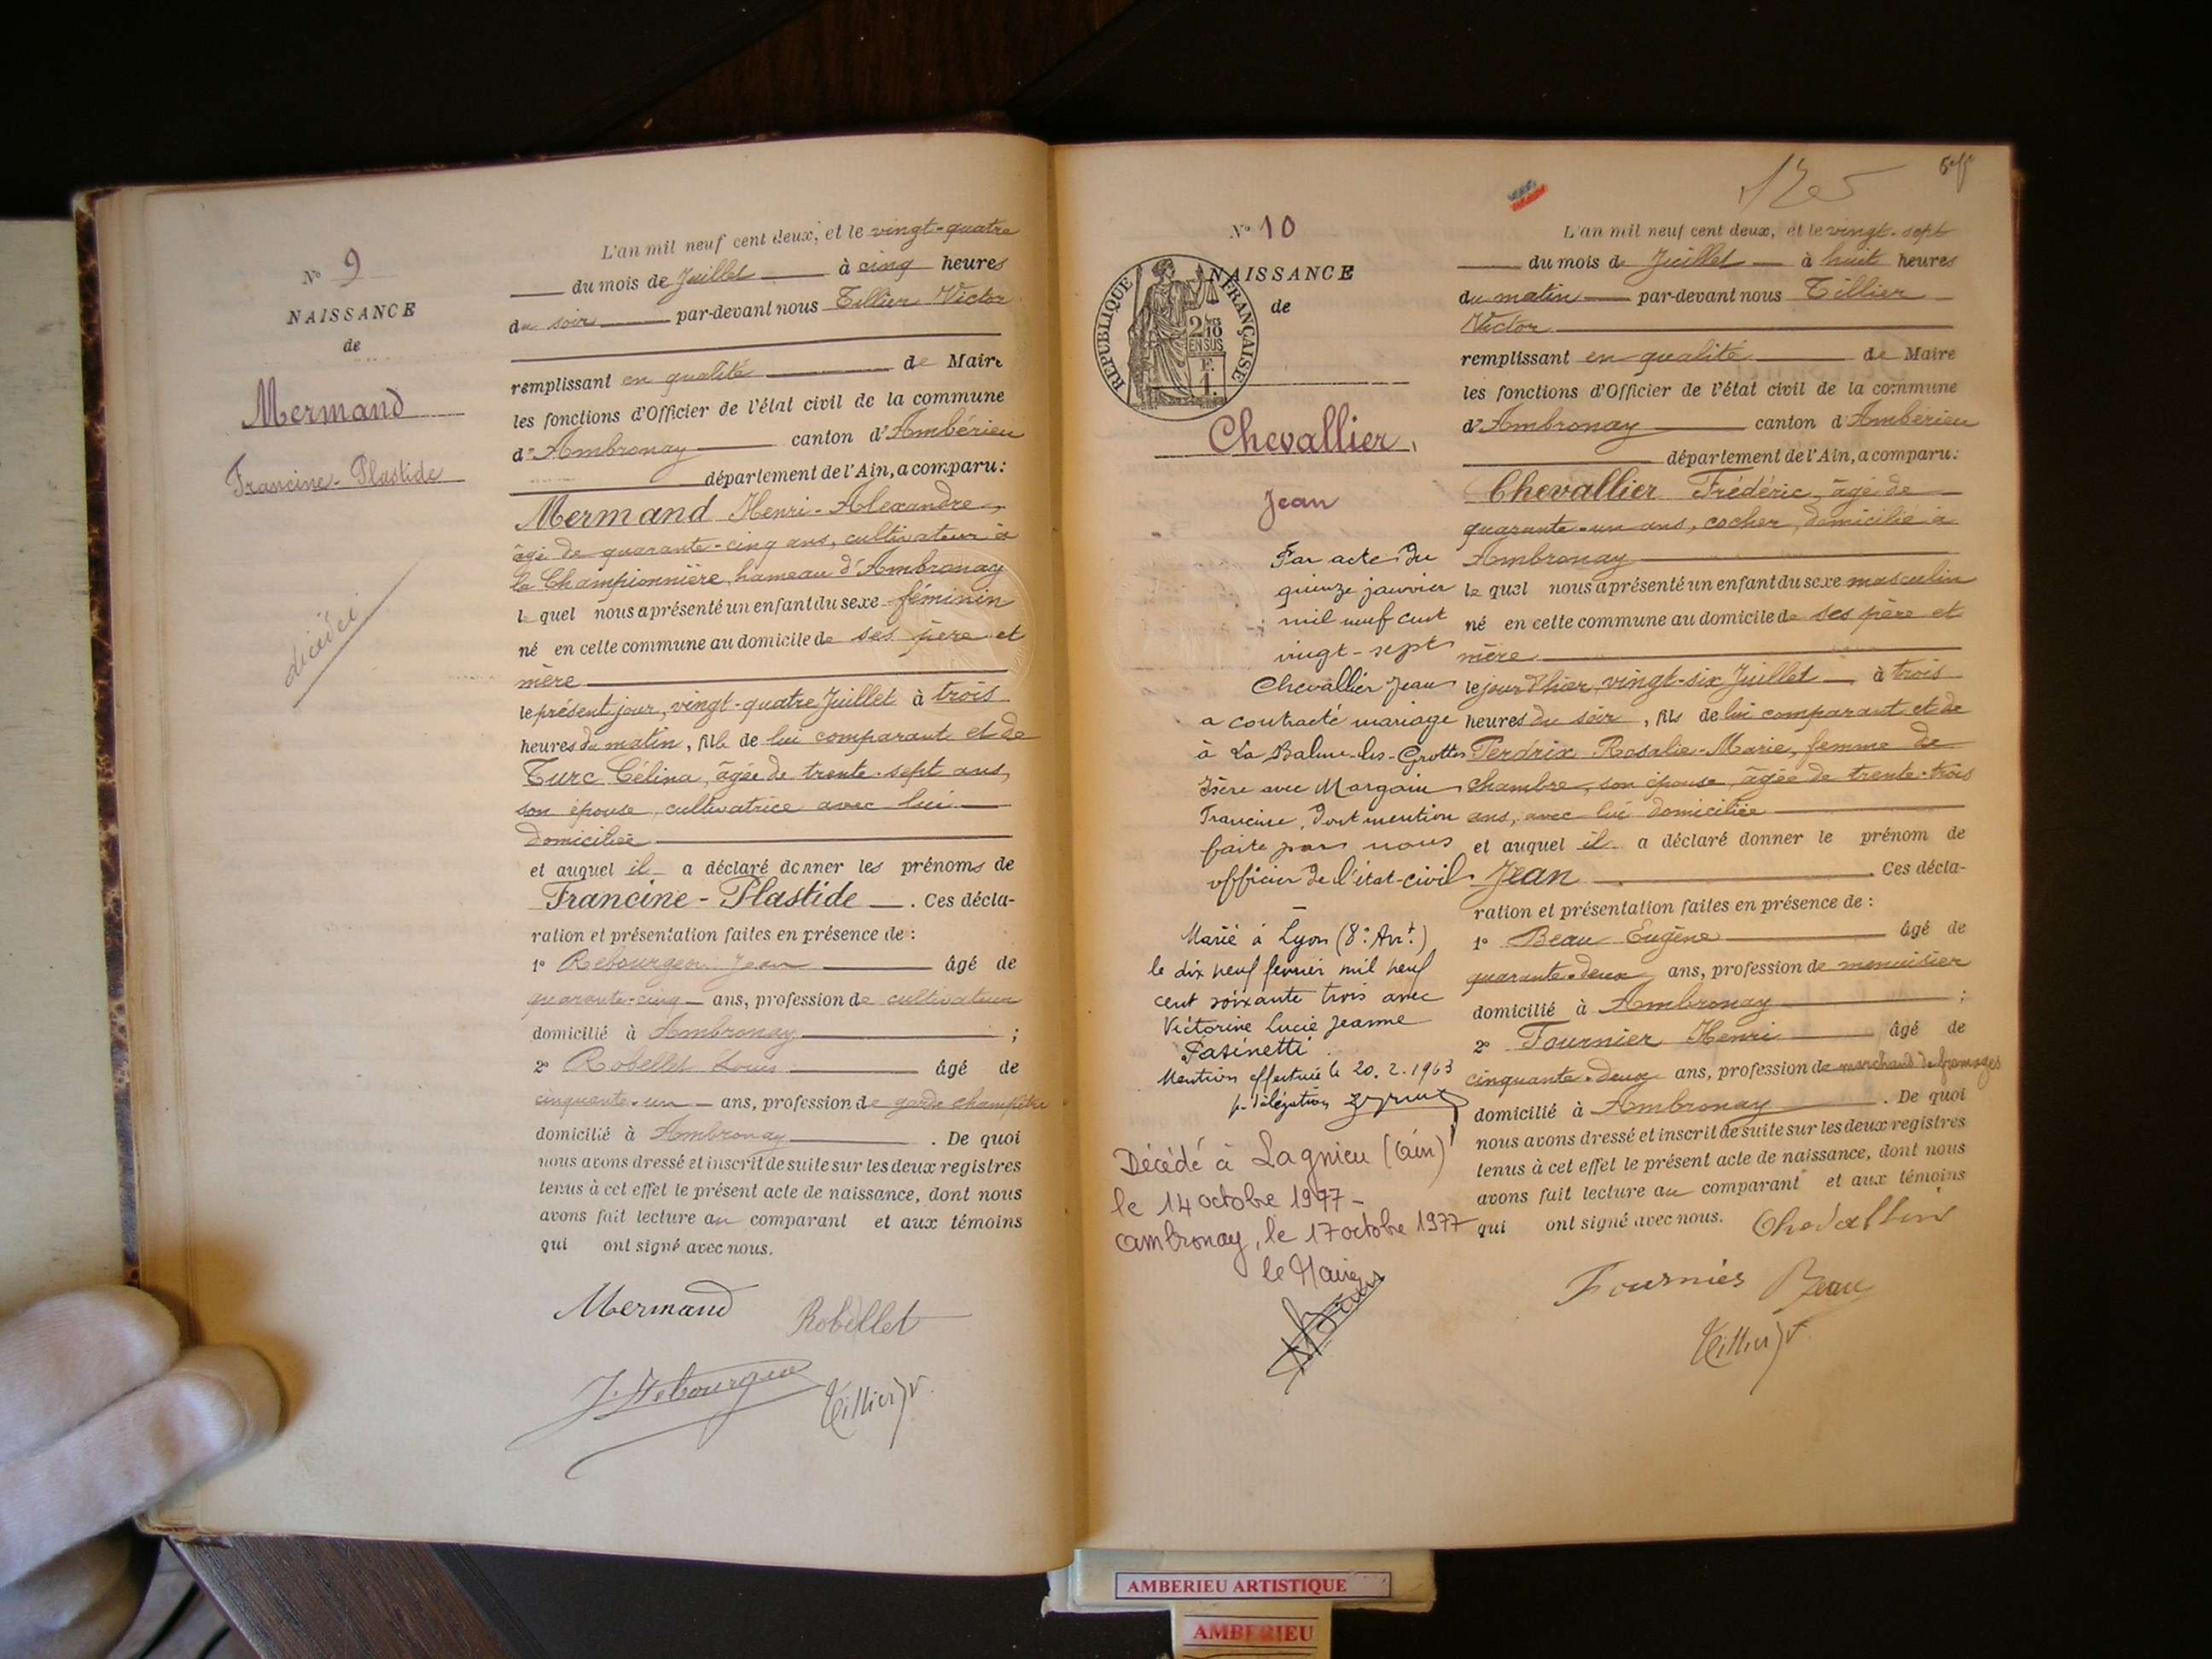 N° 9
NAISSANCE
de
Mermand
Francine-Plastide
L'an mil neuf cent deux, et le vingt-quatre
du mois de Juillet à cinq heures
du soir par-devant nous Tillier Victor
remplissant en qualité de Maire
les fonctions d'Officier de l'état civil de la commune
d'Ambronay canton d'Ambérieu
département de l'Ain, a comparu:
Mermand Henri-Alexandre,
âgé de quarante-cinq ans, cultivateur à
la Championnière, hameau d'Ambronay
le quel nous a présenté un enfant du sexe féminin
né en cette commune au domicile de ses père et
mère
le présent jour, vingt-quatre Juillet à trois
heures du matin, fille de lui comparant et de
Turc Célina, âgée de trente-sept ans,
son épouse, cultivatrice avec lui
domiciliée
et auquel il a déclaré donner les prénoms de
Francine-Plastide. Ces décla-
ration et présentation faites en présence de:
1° Rebourgeon Jean âgé de
quarante-cinq ans, profession de cultivateur
domicilié à Ambronay;
2° Robellet Louis âgé de
cinquante-un ans, profession de garde champêtre
domicilié à Ambronay. De quoi
nous avons dressé et inscrit de suite sur les deux registres
tenus à cet effet le présent acte de naissance, dont nous
avons fait lecture au comparant et aux témoins
qui ont signé avec nous.
Mermand Robellet
Tillier V.
125
N° 10
NAISSANCE
de
RÉPUBLIQUE FRANÇAISE
2/10
EN SUS
F.
1.
Chevallier,
Jean
Par acte du
quinze janvier
mil neuf cent
vingt-sept
Chevallier Jean
a contracté mariage
à La Balme-les-Grottes
Isère avec Margain
Francine, dont mention
faite par nous
officier de l'état-civil
Marié à Lyon (8e Arrt.)
le dix neuf février mil neuf
cent soixante trois avec
Victorine Lucie Jeanne
Pasinetti
Mention effectuée le 20.2.1963
p. délégation
Décédé à Lagnieu (Ain)
le 14 octobre 1977-
Ambronay, le 17 octobre 1977
le Maire
L'an mil neuf cent deux, et le vingt-sept
du mois de Juillet à huit heures
du matin par-devant nous Tillier
Victor
remplissant en qualité de Maire
les fonctions d'Officier de l'état civil de la commune
d'Ambronay canton d'Ambérieu
département de l'Ain, a comparu:
Chevallier Frédéric, âgé de
quarante-un ans, cocher, domicilié à
Ambronay
le quel nous a présenté un enfant du sexe masculin
né en cette commune au domicile de ses père et
mère
le jour d'hier, vingt-six Juillet à trois
heures du soir, fils de lui comparant et de
Perdrix Rosalie-Marie, femme de
chambre, son épouse, âgée de trente-trois
ans, avec lui domiciliée
et auquel il a déclaré donner le prénom de
Jean. Ces décla-
ration et présentation faites en présence de:
1° Beau Eugène âgé de
quarante-deux ans, profession de menuisier
domicilié à Ambronay;
2° Fournier Henri âgé de
cinquante-deux ans, profession de marchand de fromages
domicilié à Ambronay. De quoi
nous avons dressé et inscrit de suite sur les deux registres
tenus à cet effet le présent acte de naissance, dont nous
avons fait lecture au comparant et aux témoins
qui ont signé avec nous. Chevallier
Fournier Beau
Tillier V.
AMBERIEU ARTISTIQUE
AMBERIEU